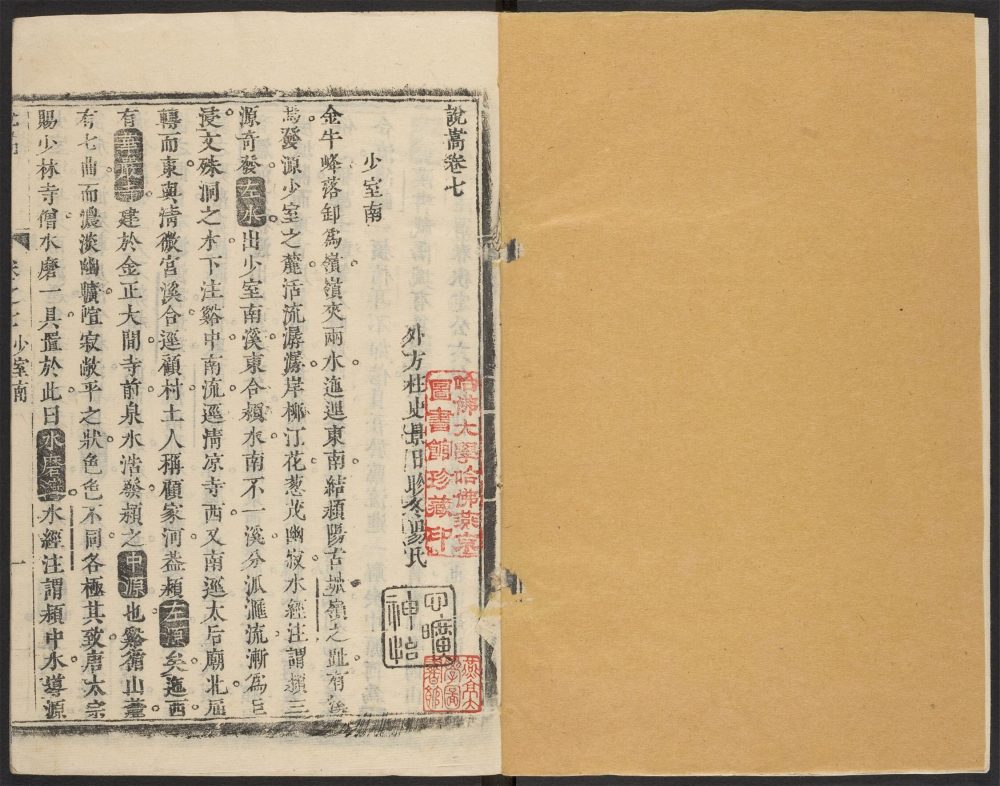 說嵩卷七
外方柱史景日昣冬陽氏
少室南
金牛峰落卸爲嶺嶺夾兩水迤邐東南結潁陽古城嶺之趾有
焉發源少室之麓活流潺潺岸柳汀花葱茂幽寂水經注謂潁三
源奇發左水出少室南溪東合潁水南不一溪分派滙流漸爲巨
浸文殊洞之水下注谿中南流逕淸凉寺西又南逕太后廟北屈
轉而東與淸微宮溪合逕顧村土人稱顧家河葢潁左源矣迤西
有 建於金正大間寺前泉水浩發潁之中源也谿舘山
有七曲而濃淡幽曠喧寂敞平之狀色色不同各極其致唐太宗
賜少林寺僧水磨一具置於此曰水磨灣水經注謂潁中水導源
卷之七 少室南
一
哈佛大學哈佛燕京
圖書館珍藏印
心曠
神怡